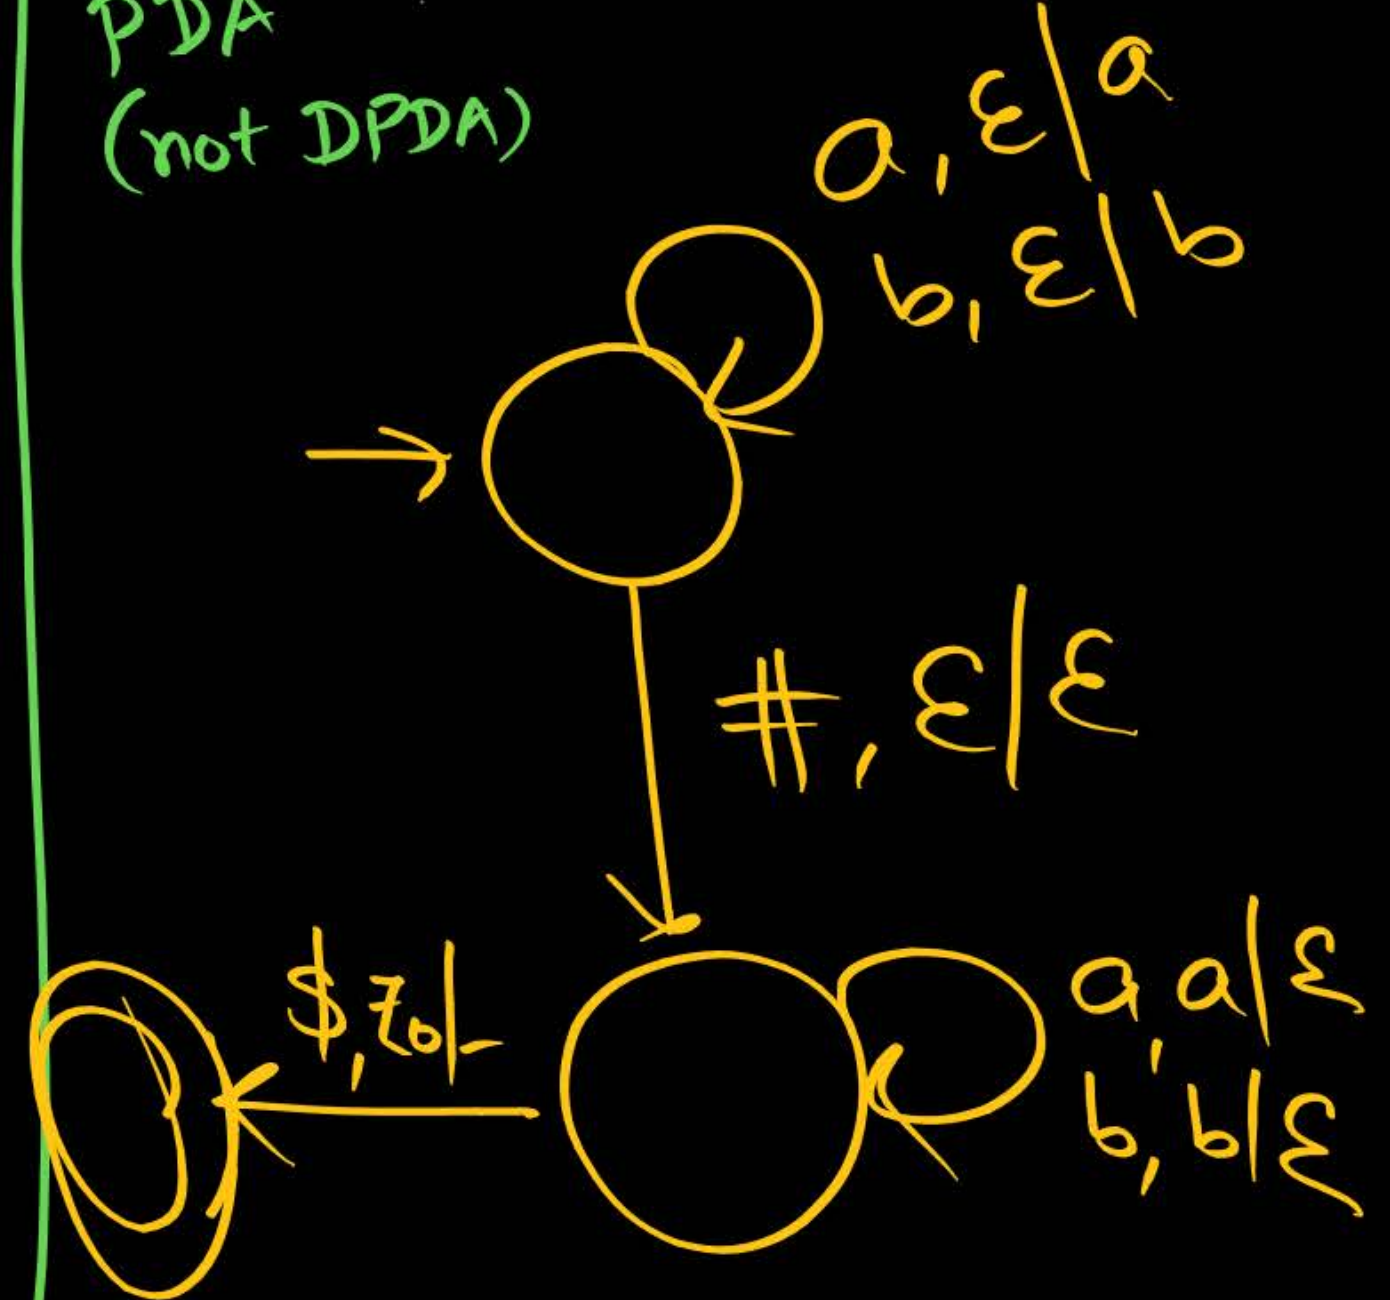 PDA
(not DPDA)
a, ε | a
b, ε | b
#, ε | ε
$, z0 | -
a, a | ε
b, b | ε